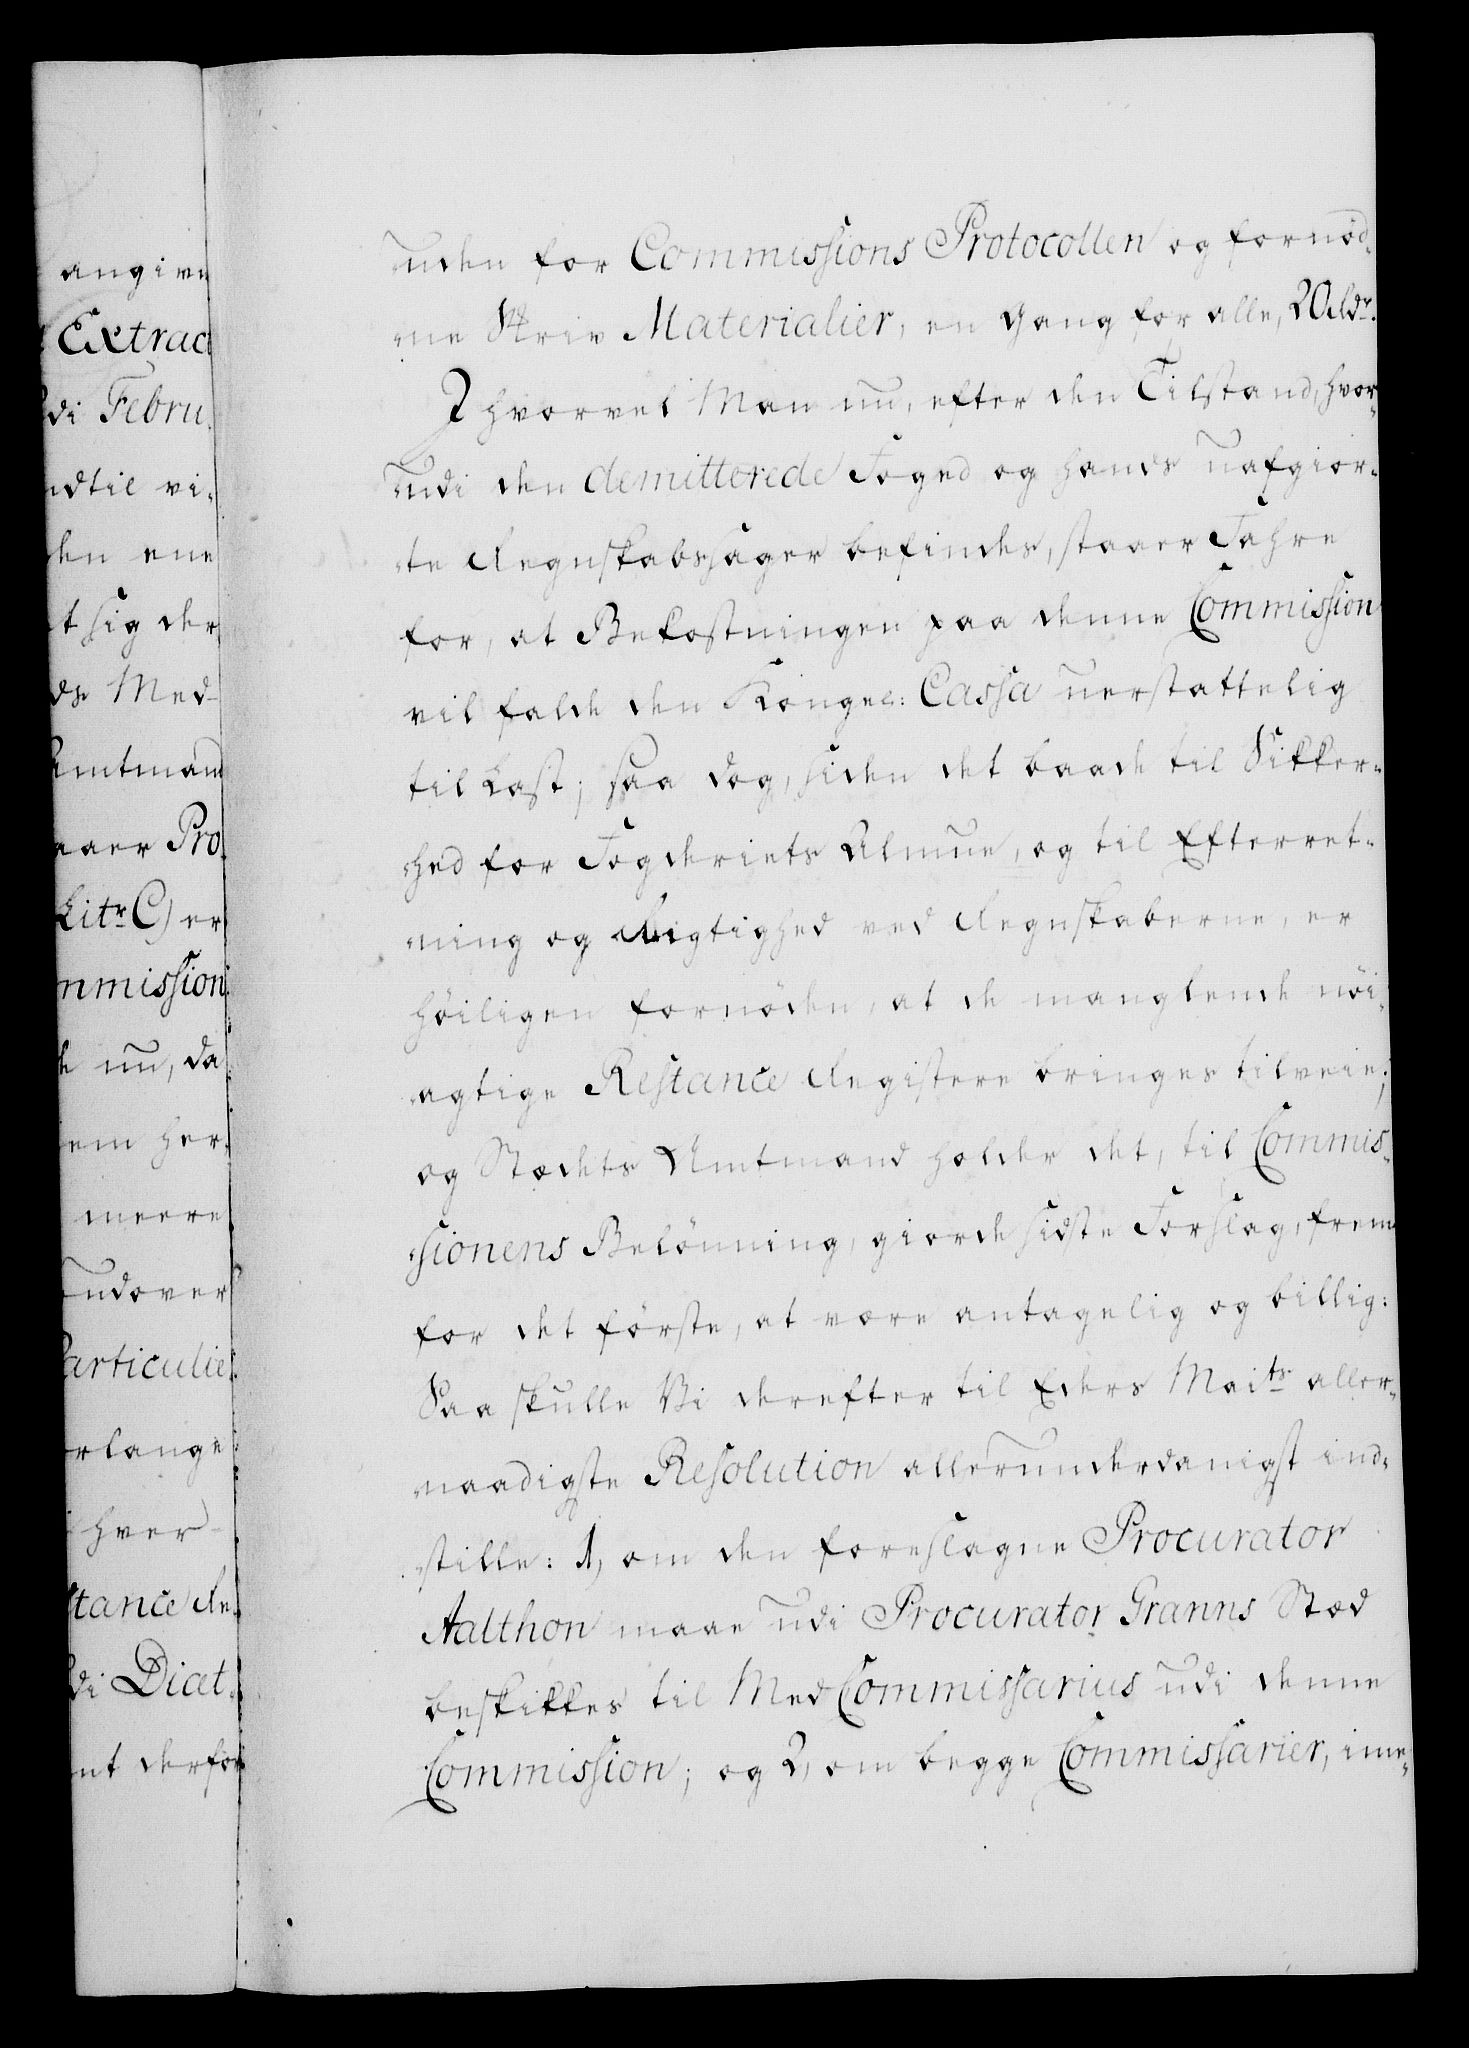 angiv
Extrac
di Febru
ndtil vi-
den ene
t sig der
ds Med-
Amtmand
aaer Pro
Litr C) er
mmission
nu, da
em her
meere
udover
Particulie
rlange
hver
stance Re
di Diæt
nt derfor
uden for Commissions Protocollen og fornød-
ne Skriv Materialier, en Gang for alle, 20 Rdr.
Ihvorvel Man nu, efter den Tilstand, hvor-
udi den demitterede Foged og hands uafgior-
te Regnskabssager befindes, staaer Fahre
for, at Bekostningen paa denne Commission
vil falde den Kongel: Cassa uerstattelig
til Last; saa dog, siden det baade til Sikker-
hed for Fogderiets Almue, og til Efterret-
ning og Rigtighed ved Regnskaberne, er
høiligen fornøden, at de manglende nøi-
agtige Restance Registere bringes tilveie;
og Stædets Amtmand holder det, til Commis-
sionens Belønning, giorde sidste Forslag, frem
for det første, at være antagelig og billig:
Saa skulle Vi derefter til Eders Maits aller-
naadigste Resolution allerunderdanigst ind-
stille: 1, om den foreslagne Procurator
Aalthon maae udi Procurator Granns Stæd
beskikkes til Med Commissarius udi denne
Commission; og 2, om begge Commissarier, ime-